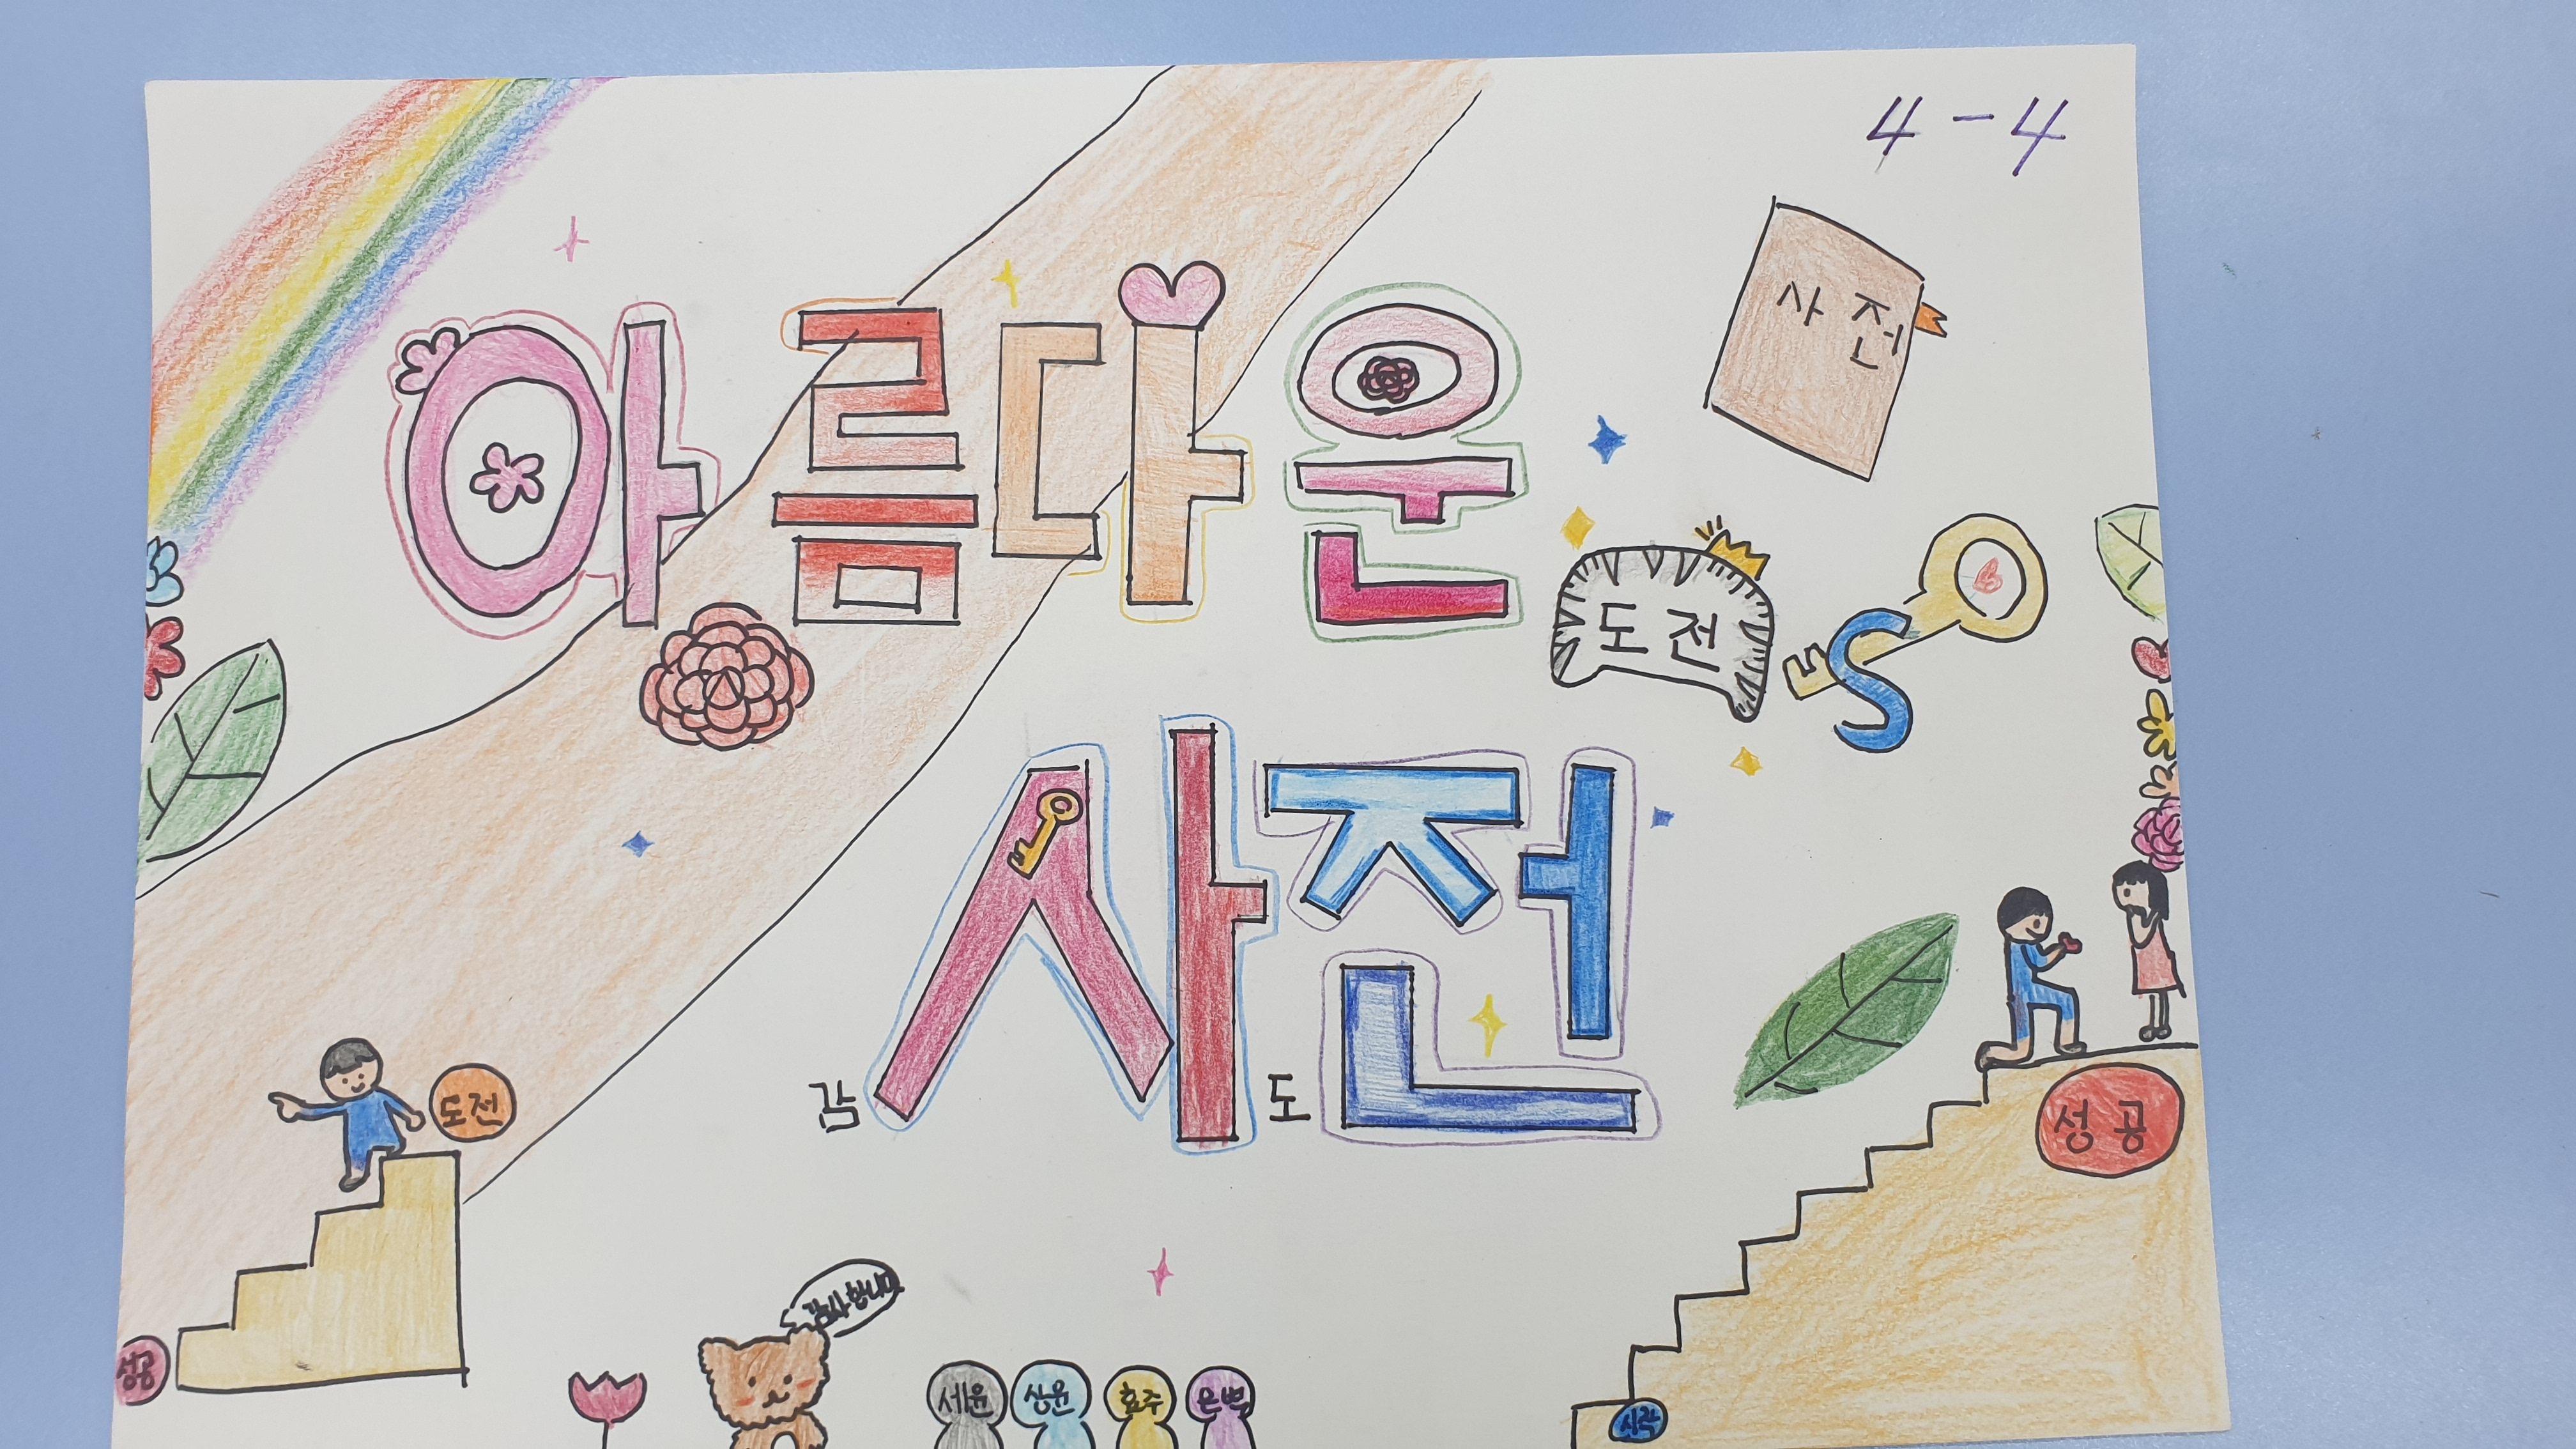 4-4
사전
아름다운
도전
S
사전
감 도
도전
성공
감사합니다
성공
세윤 상윤 효주 은벽
시작